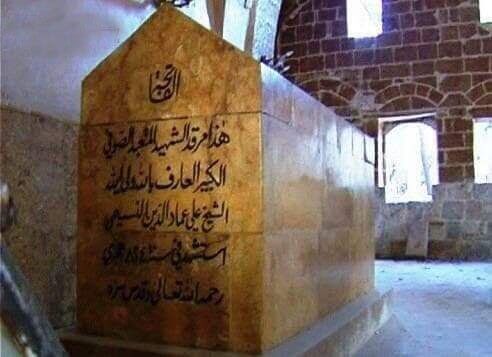 الفاتحة
هذا مرقد الشهيد المتعبد الصوفي
الكبير العارف بالله
الشيخ علي عماد الدين النسيمي
استشهد في سنة هجري
رحمه الله تعالى وقدس سره